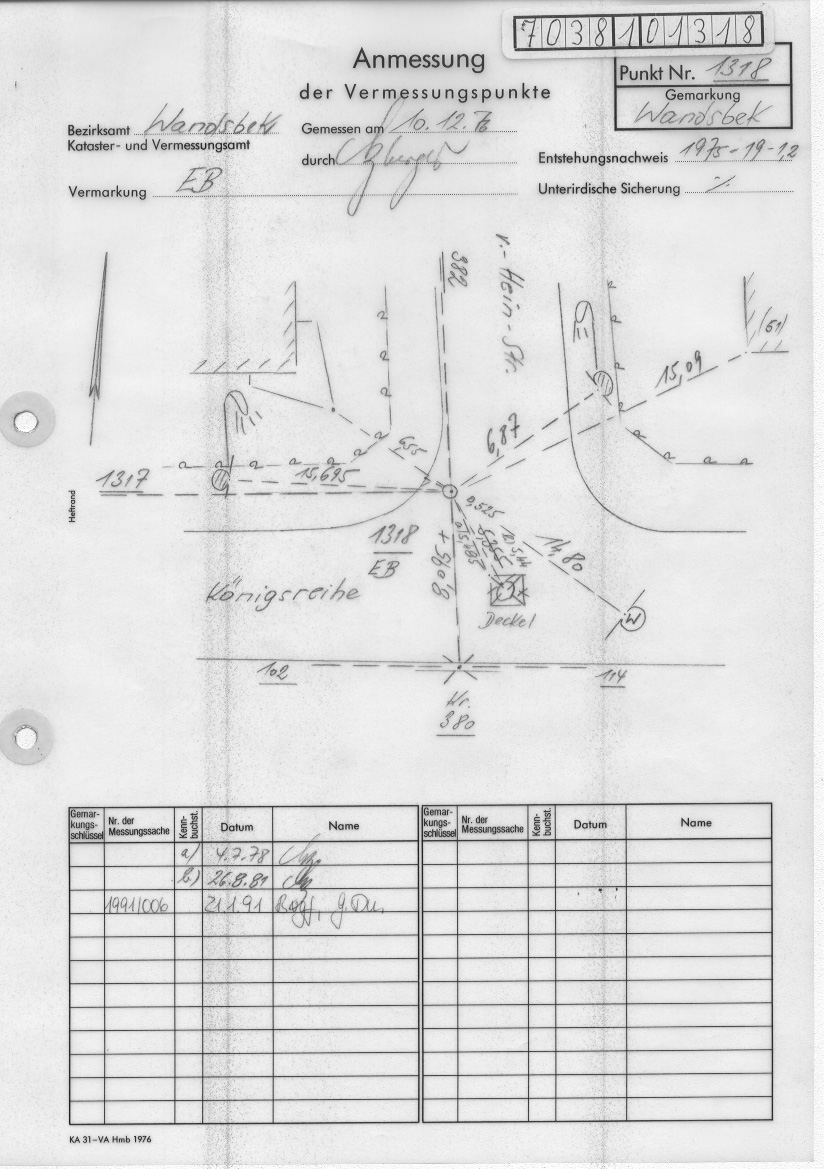 7038101318
Anmessung
der Vermessungspunkte
Punkt Nr. 1318
Gemarkung
Wandsbek
Bezirksamt Wandsbek
Kataster- und Vermessungsamt
Gemessen am 10.12.76
durch
Entstehungsnachweis 1975-19-1,2
Vermarkung EB
Unterirdische Sicherung ./.
382
v.-Hein-Str.
(61)
15,09
6,87
6,55
1317
15,695
0,525
1318
EB
+ 8,095
5,255
14,80
Königsreihe
Deckel
W
102
114
Nr.
380
Heftrand
Gemar-kungs-schlüssel Nr. der Messungssache Kenn-buchst. Datum Name
Gemar-kungs-schlüssel Nr. der Messungssache Kenn-buchst. Datum Name
a) 4.7.78
b) 26.8.81
1991/006 21.1.91
KA 31–VA Hmb 1976